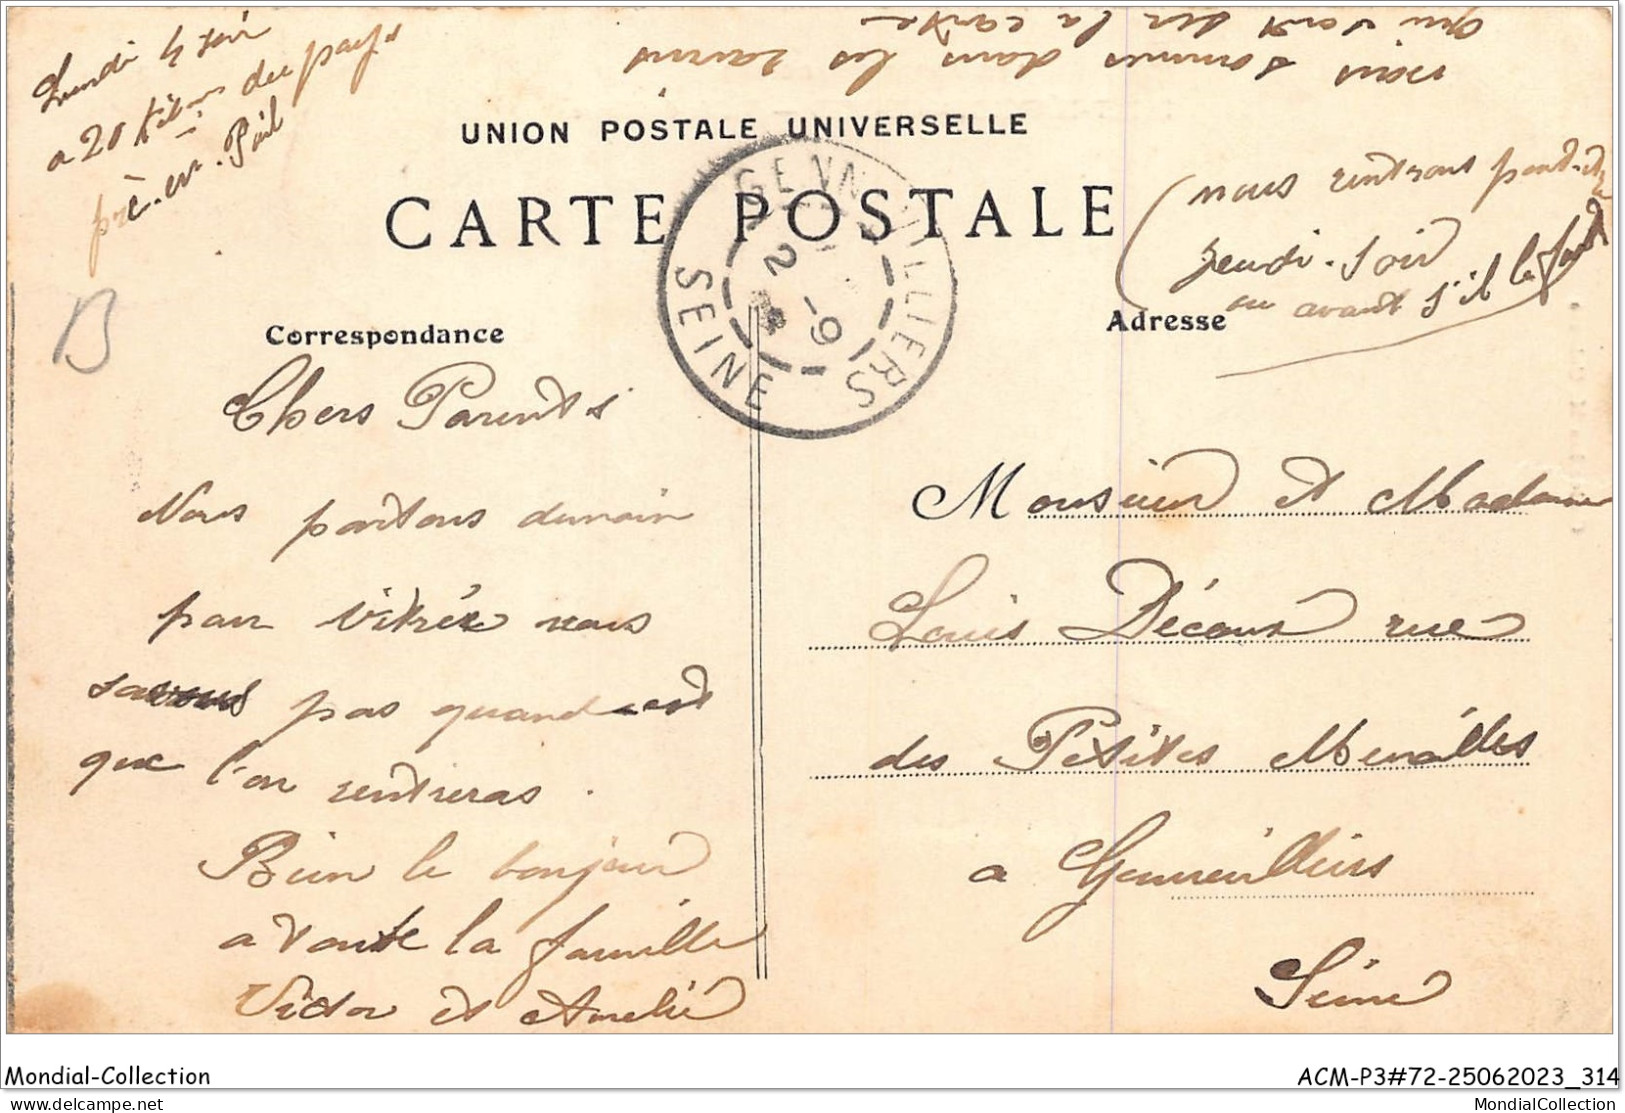 Lundi 4 soir
a 20 Kilm du pays
prè-en-Pail
nous sommes dans les ravins
qui sont sur la carte
UNION POSTALE UNIVERSELLE
CARTE POSTALE
(nous rentrons peut-être
jeudi-soir
ou avant s'il le faut
GENNEVILLIERS
2 -9
SEINE
B
Correspondance
Adresse
Chers Parents
Nous partons demain
par vitrée nous
savons pas quand est
que l'on rentreras.
Bien le bonjour
a toute la famille
Victor et Amelie
Monsieur et Madame
Louis Décour rue
des Petites Murailles
a Gennevilliers
Seine
Mondial-Collection
ACM-P3#72-25062023_314
delcampe.net
MondialCollection